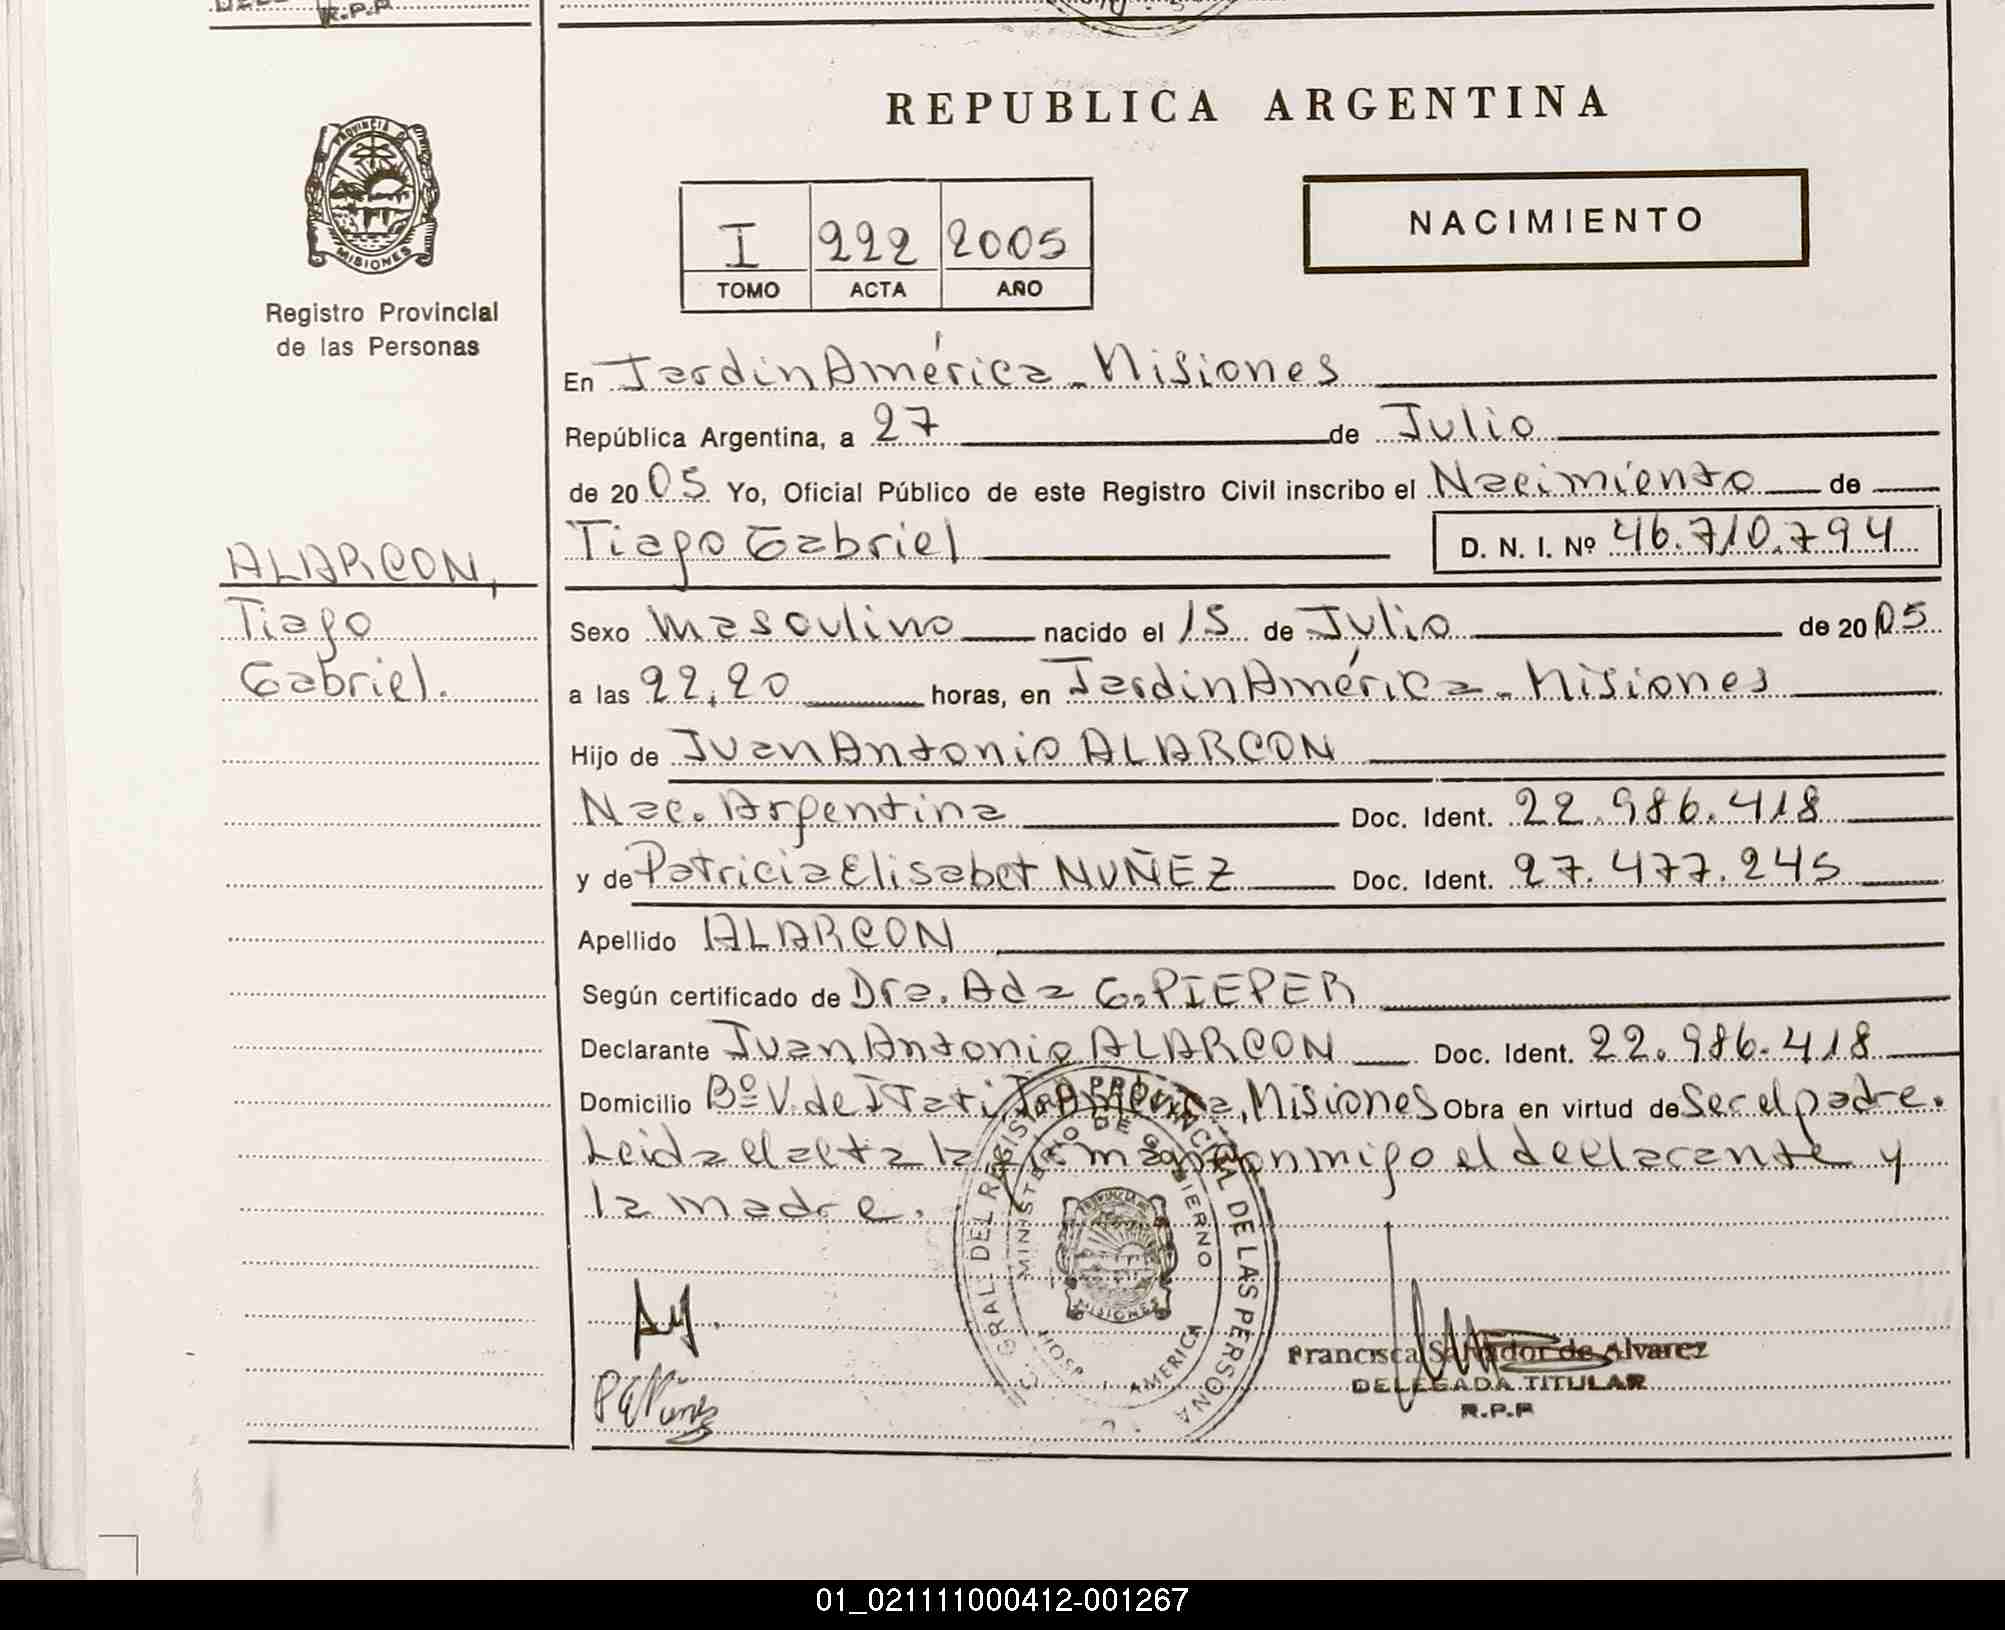 R.P.P
REPUBLICA ARGENTINA
PROVINCIA DE
MISIONES
Registro Provincial
de las Personas
I 222 2005
TOMO ACTA AÑO
NACIMIENTO
En Jardin América - Misiones
República Argentina, a 27 de Julio
de 2005 Yo, Oficial Público de este Registro Civil inscribo el Nacimiento de
Tiago Gabriel D. N. I. Nº 46.710.794
ALARCON,
Tiago
Gabriel.
Sexo Masculino nacido el 15 de Julio de 2005
a las 22,20 horas, en Jardin América - Misiones
Hijo de Juan Antonio ALARCON
Nac. Argentina Doc. Ident. 22.986.418
y de Patricia Elisabet NUÑEZ Doc. Ident. 27.477.245
Apellido ALARCON
Según certificado de Dra. Ada G. PIEPER
Declarante Juan Antonio ALARCON Doc. Ident. 22.986.418
Domicilio Bº V. de ITati, J. América, Misiones Obra en virtud de Ser el padre.
Leida el acta la firman conmigo el declarante y
la madre.
GRAL. DEL REGISTRO PROVINCIAL DE LAS PERSONAS
MINISTERIO DE GOBIERNO
MISIONES
AMERICA
P E Nuñez
Francisca Salvador de Alvarez
DELEGADA TITULAR
R.P.P
01_021111000412-001267